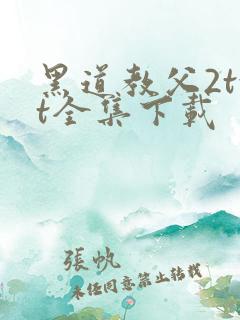 黑道教父2tx
t全集下载
張帆
未经同意禁止转载